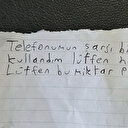 Telefonumun şarjı
kullandım lütfen
Lütfen bu miktar